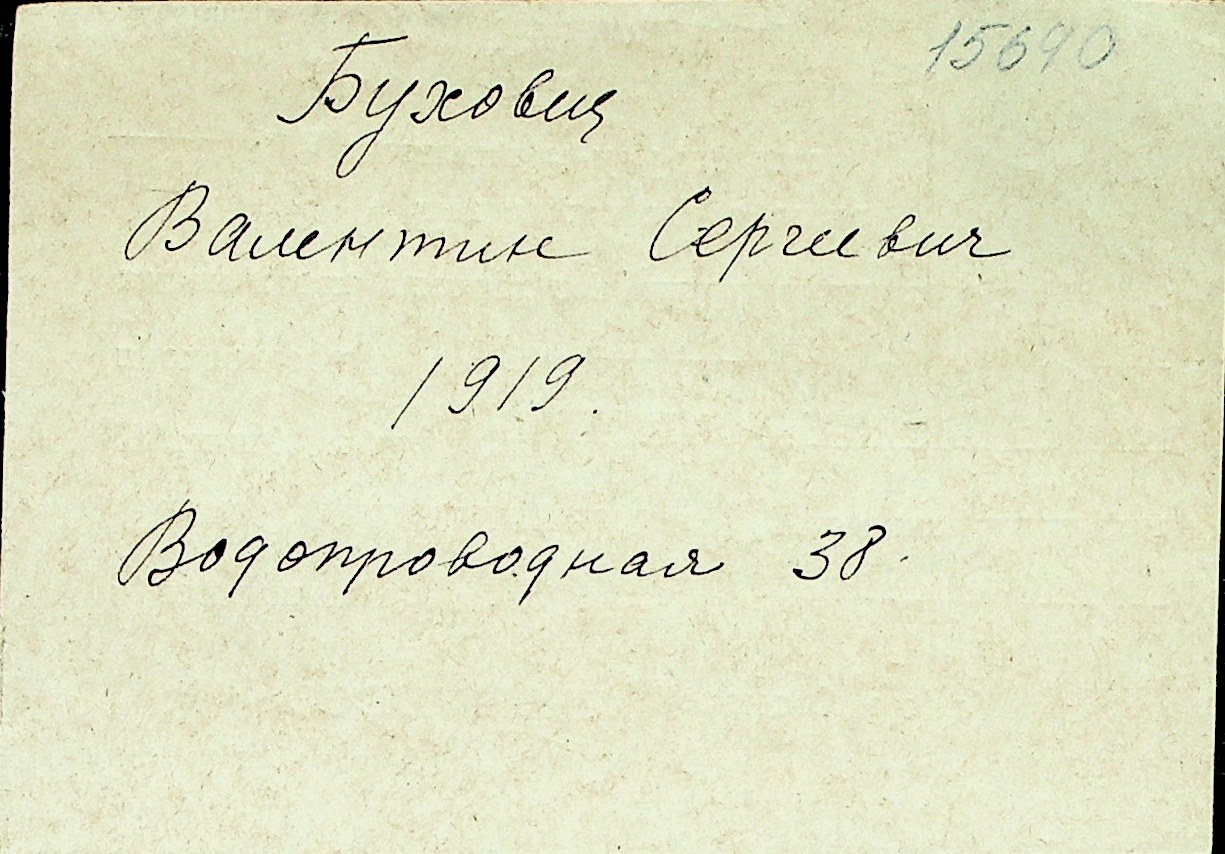 15690
Буховец
Валентин Сергеевич
1919.
Водопроводная 38.